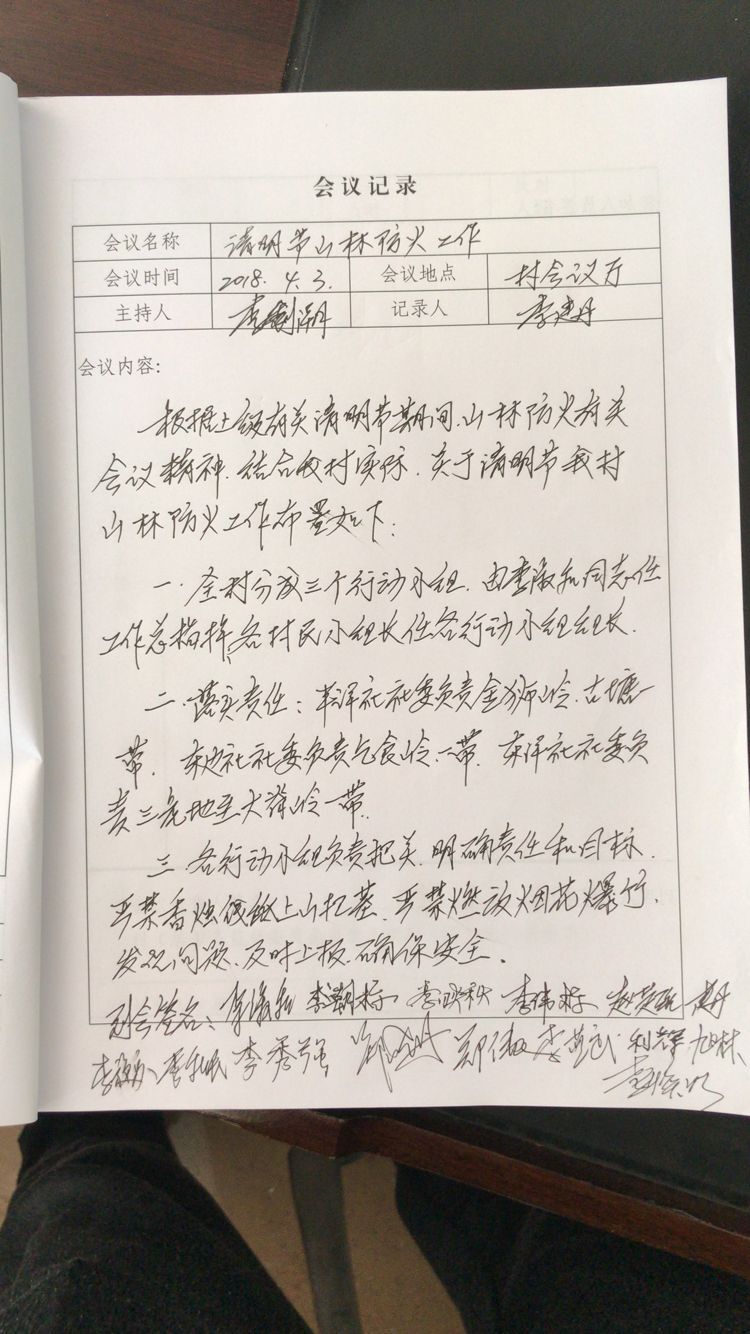 会议记录
会议名称 清明节山林防火工作
会议时间 2018.4.3. 会议地点 村会议厅
主持人 李 记录人 李建丹
会议内容:
根据上级有关清明节期间山林防火有关
会议精神.结合我村实际.关于清明节我村
山林防火工作布置如下:
一.全村分成三个行动小组.由李 同志任
工作总指挥,各村民小组长任各行动小组组长.
二.落实责任:泽社社委负责金狮岭.古塘一
带.东边社社委负责乞食岭一带.东泽社社委负
责三 地至大 岭一带.
三.各行动小组负责把关.明确责任和目标.
严禁香烛纸上山扫墓.严禁燃放烟花爆竹.
发现问题.及时上报.确保安全.
到会签名: 李 李 李 李伟
李 李 李秀强 郑 李 武 利辉 旭林
李